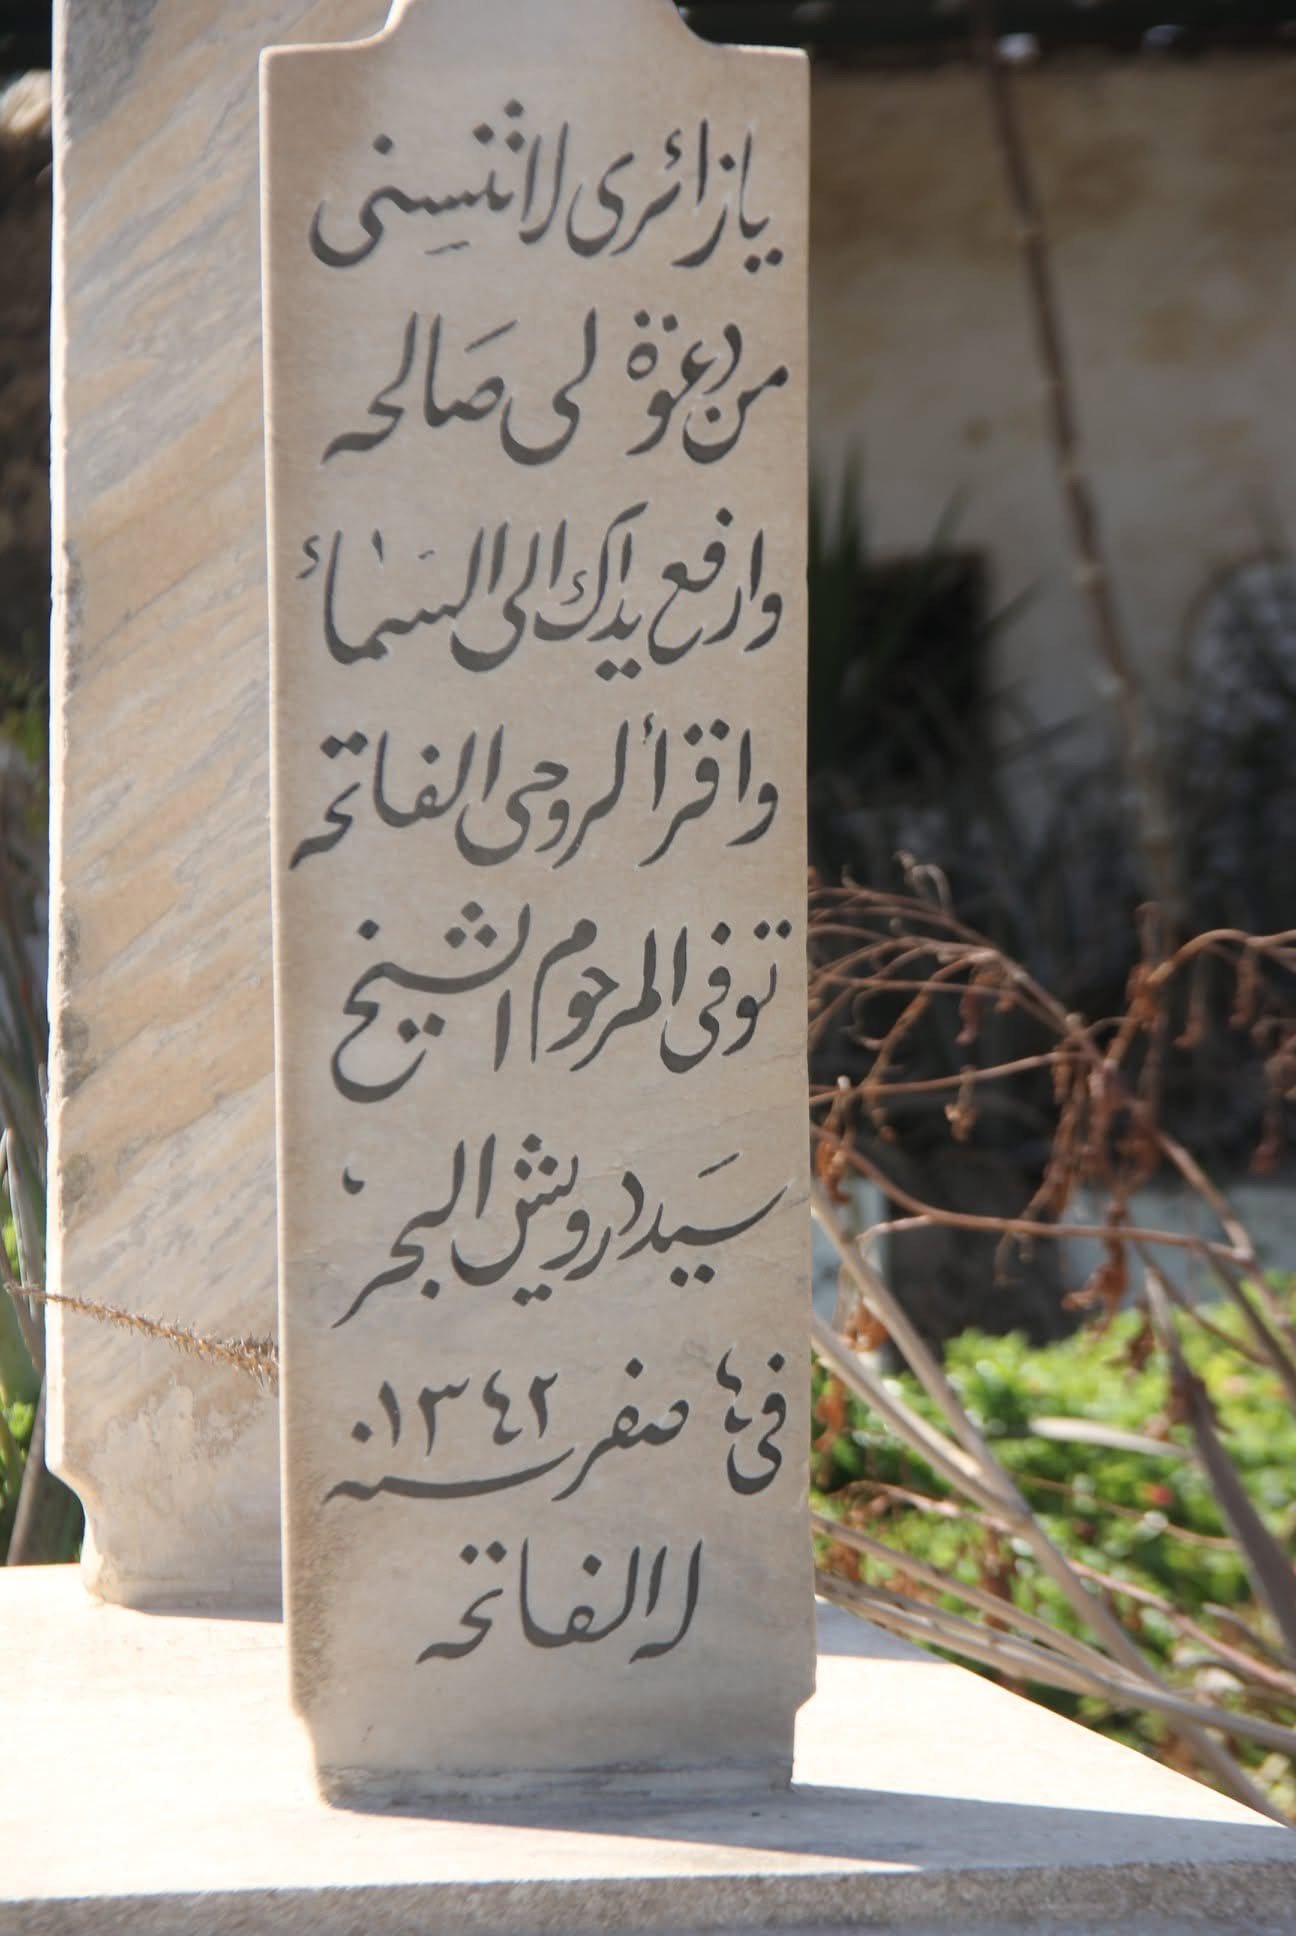 يا زائرى لا تنسنى
من دعوة لى صالحه
وارفع يداك الى السماء
واقرأ لروحى الفاتحه
توفى المرحوم الشيخ
سيد درويش البحر
فى صفر سنه ١٣٤٢
له الفاتحه